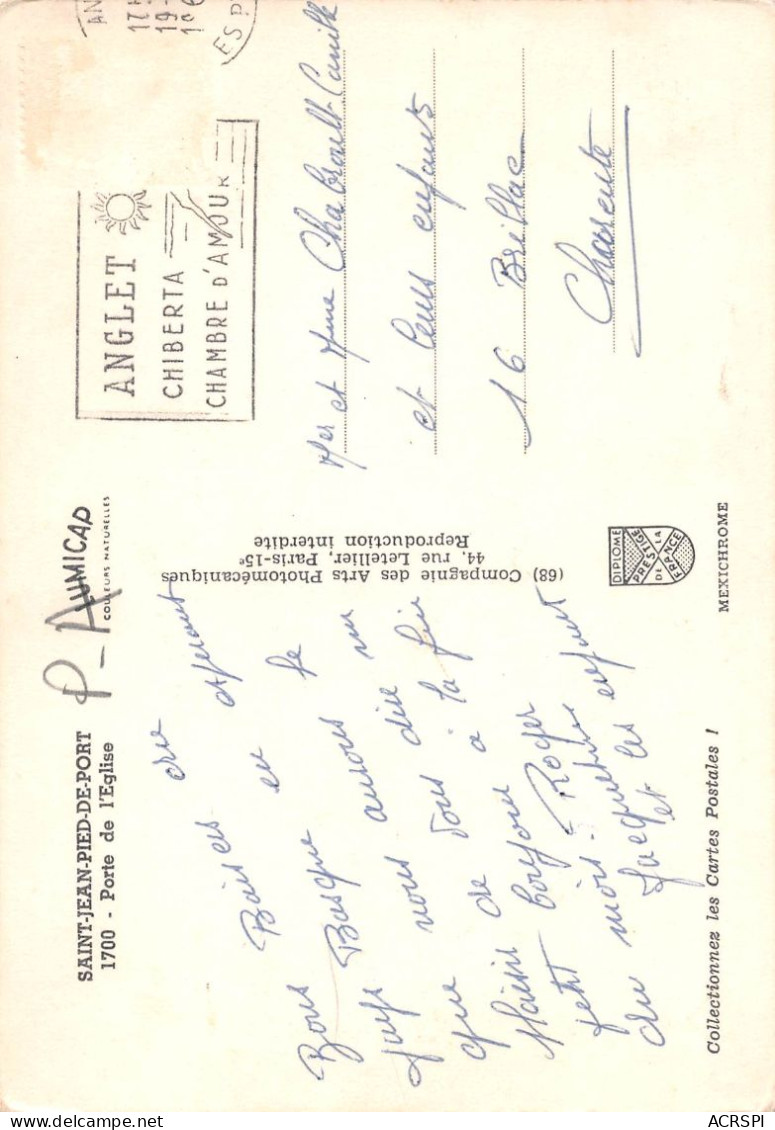 SAINT-JEAN-PIED-DE-PORT
1700 - Porte de l'Eglise
P-A
LUMICAP
COULEURS NATURELLES
Bons Baisers du
Pays Basque en
nous aurons
que vous dire
plaisir de vous à la fin
petit bonjour
du mois. Roger
Jacqueline
et les enfants
(68) Compagnie des Arts Photomécaniques
44, rue Letellier, Paris-15e
Reproduction interdite
17
19-
ES P
ANGLET
CHIBERTA
CHAMBRE D'AMOUR
Mer et Mme Chabrault Camille
et leurs enfants
16 Brillac
Charente
DIPLOME
PRESTIGE
DE LA
FRANCE
MEXICHROME
Collectionnez les Cartes Postales !
ACRSPI